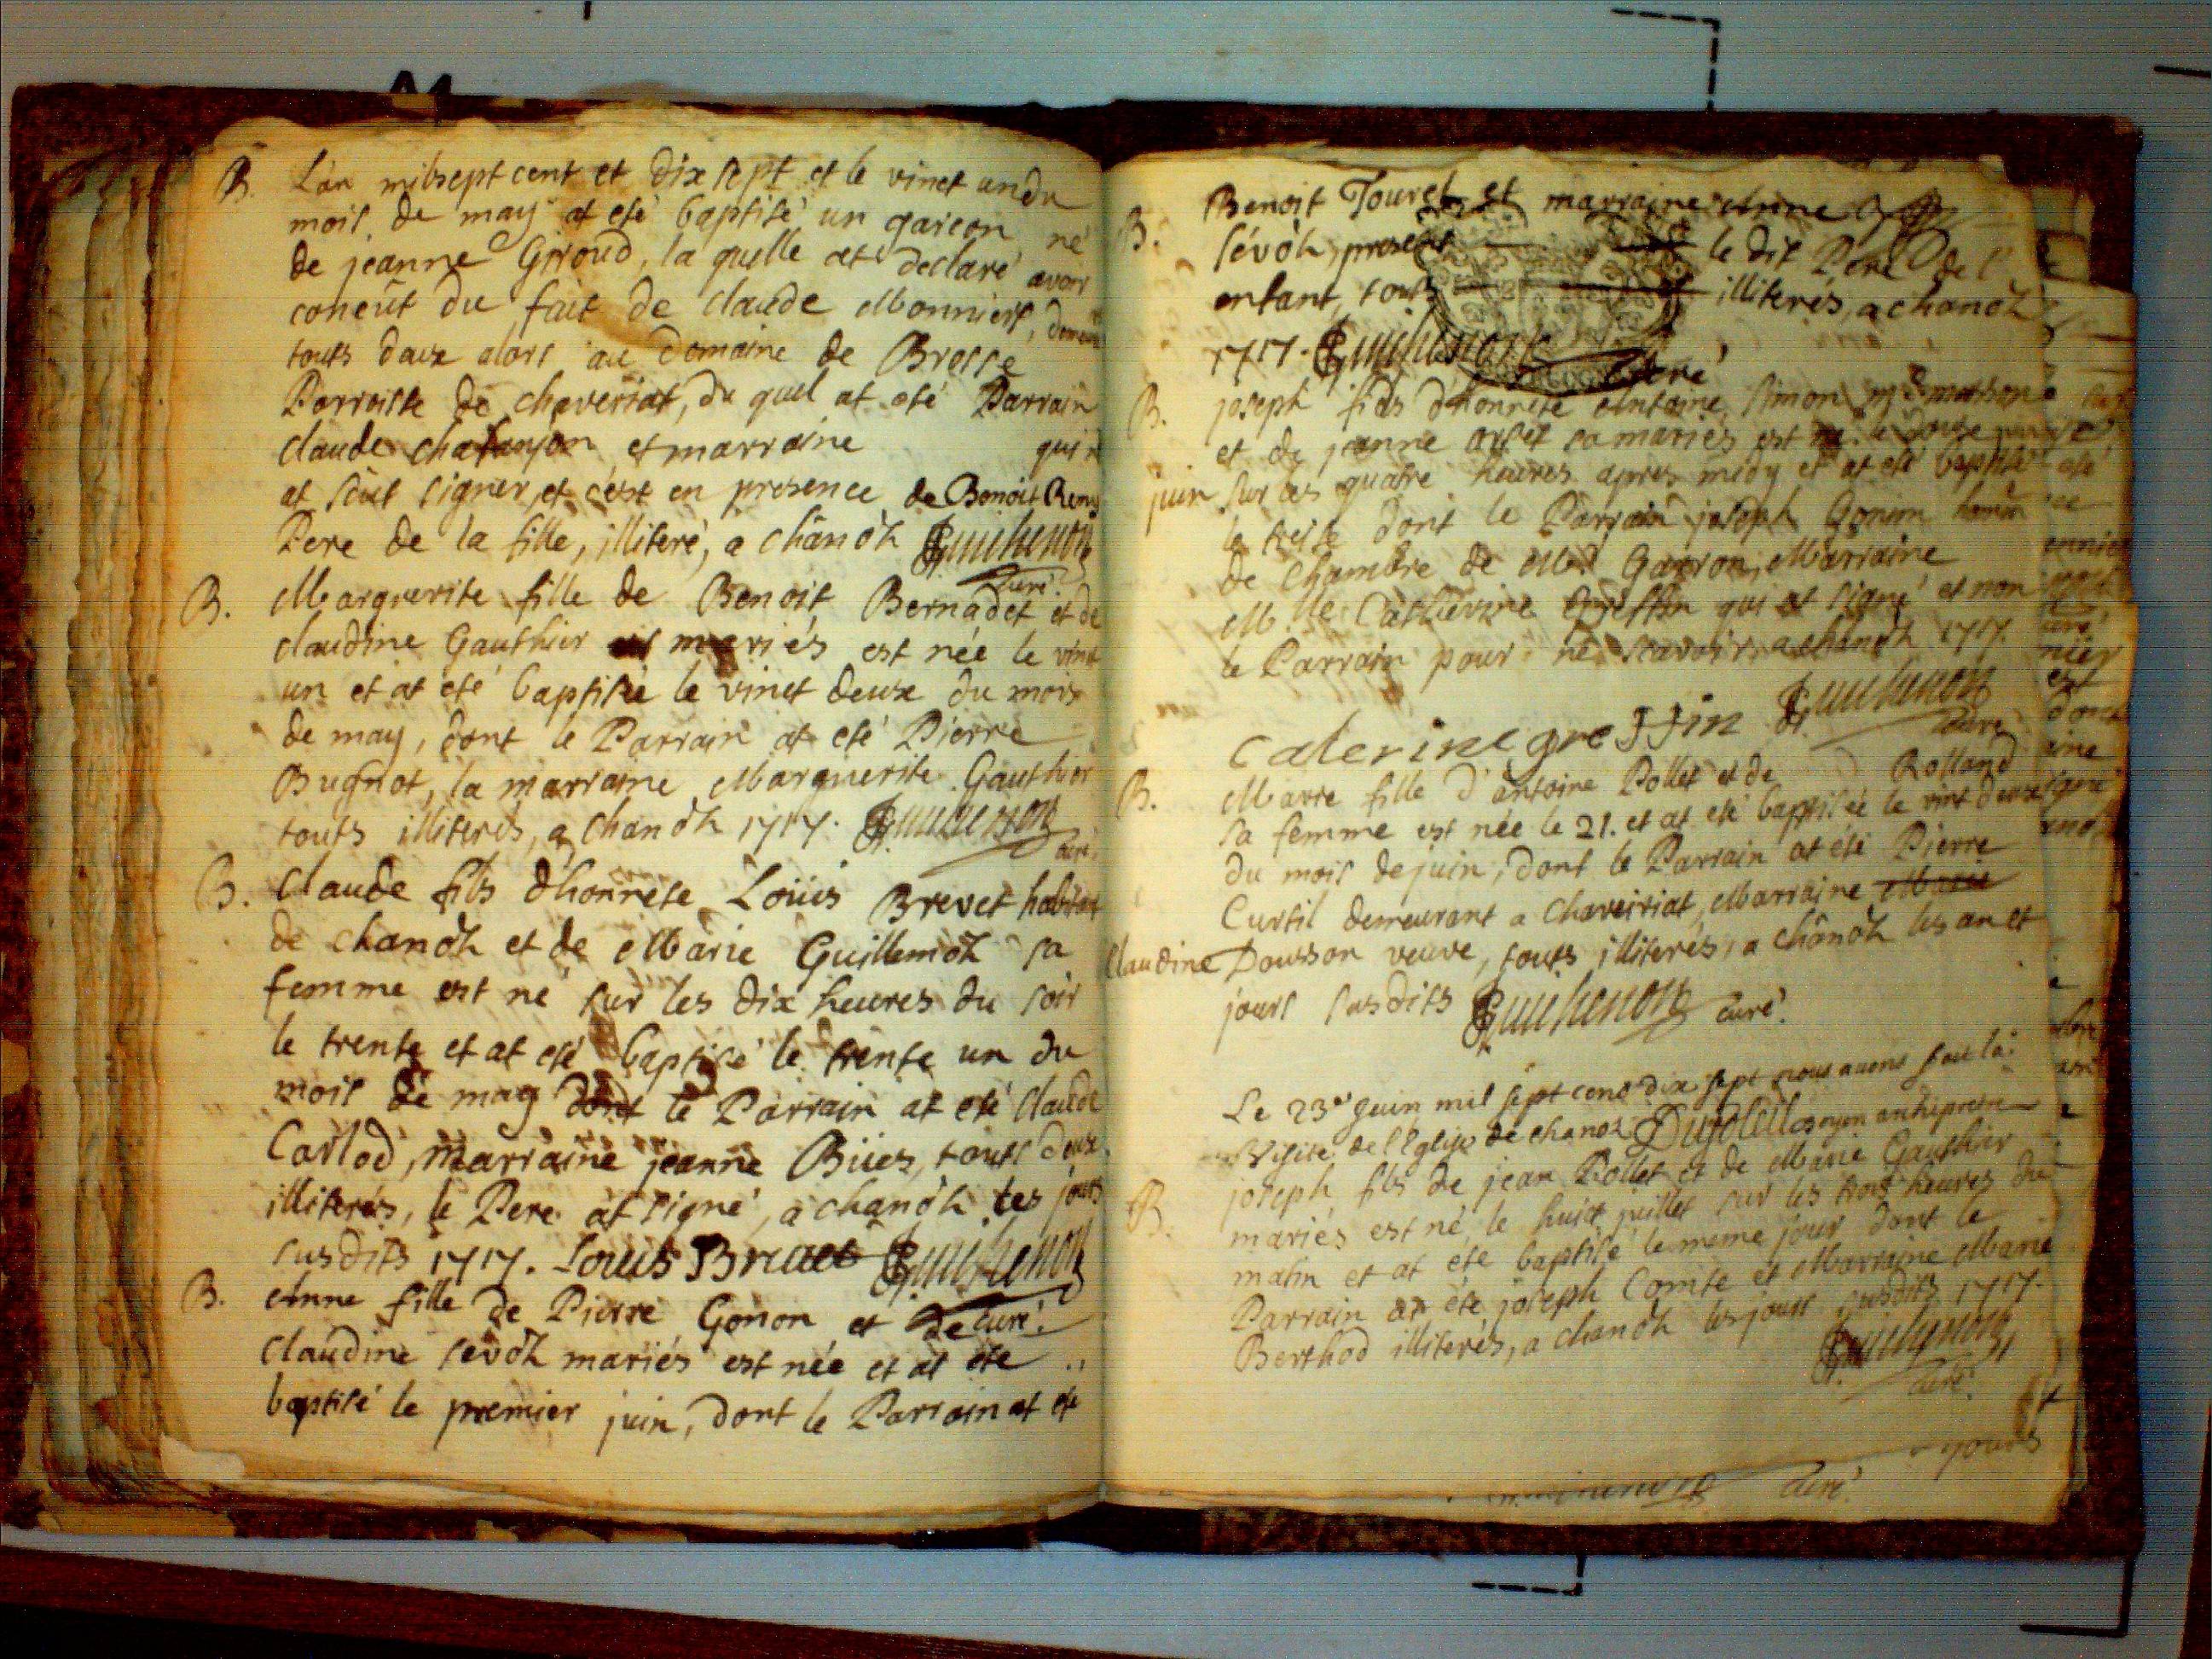 B. L'an mil sept cent et dix sept et le vinct un du
mois de may at eté baptisé un garcon né
de jeanne Giroud, la quelle at declaré avoir
conceüt du fait de claude Monnier,
touts deux alors au domaine de Bresse
Parroisse de chaveriat, du quel at eté Parrain
claude chafanjon et marraine qui n
at sçût signer, et c'est en presence de Benoit
Pere de la fille, illiteré, a chânoz Guichenon
curé.
B. Marguerite fille de Benoit Bernadet et de
claudine Gauthier mariés est née le vinct
un et at eté baptisée le vinct deux du mois
de may, dont le Parrain at eté Pierre
Bugnot, la marraine Marguerite Gauthier
touts illiterés, a chanoz 1717. Guichenon
curé.
B. Claude fils d'honnete Loüis Brevet habitant
de chanoz et de Marie Guillemoz sa
femme est né sur les dix heures du soir
le trente et at eté baptisé le trente un du
mois de may dont le Parrain at eté claude
Carlod, marraine jeanne Büies, touts deux
illiterés, le Pere at signé, a chanoz les jours
susdits 1717. Louis Brevet Guichenon
B. Anne fille de Pierre Gonon et de curé.
claudine sevoz mariés est née et at eté
baptisé le premier juin, dont le Parrain at eté
Benoit Touret et marraine Anne
B. sévoz, present le dit Pere de l'
enfant, touts illiterés, a chanoz
1717. Guichenon
curé
B. joseph fils d'honnete Antoine Simon
et de jeanne mariés est né le douze
juin sur les quatre heures apres midy et at eté baptisé
le treise dont le Parrain joseph Gonem
de chambre de Garron, Marraine
Mlle Catherine Gressin qui at signé et non
le Parrain pour ne scavoir, a chanoz 1717.
Caterine gressin Guichenon
curé
B. Marie fille d'Antoine Pollet et de Rolland
sa femme est née le 21. et at eté baptisée le vint deuxe
du mois de juin, dont le Parrain at eté Pierre
Curtil demeurant a chaveiriat, Marraine Marie
Claudine Dousson veuve, touts illiterés, a chânoz les an et
jours susdits Guichenon curé.
Le 23e juin mil sept cent dix sept nous avons fait la
Visite de l'Eglise de chanoz
joseph fils de jean Pollet et de Marie Gauthier
B. mariés est né le huict juillet sur les trois heures du
matin et at eté baptisé le meme jour dont le
Parrain at eté joseph Comte et Marraine Marie
Berthod illiterés, a chanoz les jours susdits 1717.
Guichenon
curé.
jours
curé.